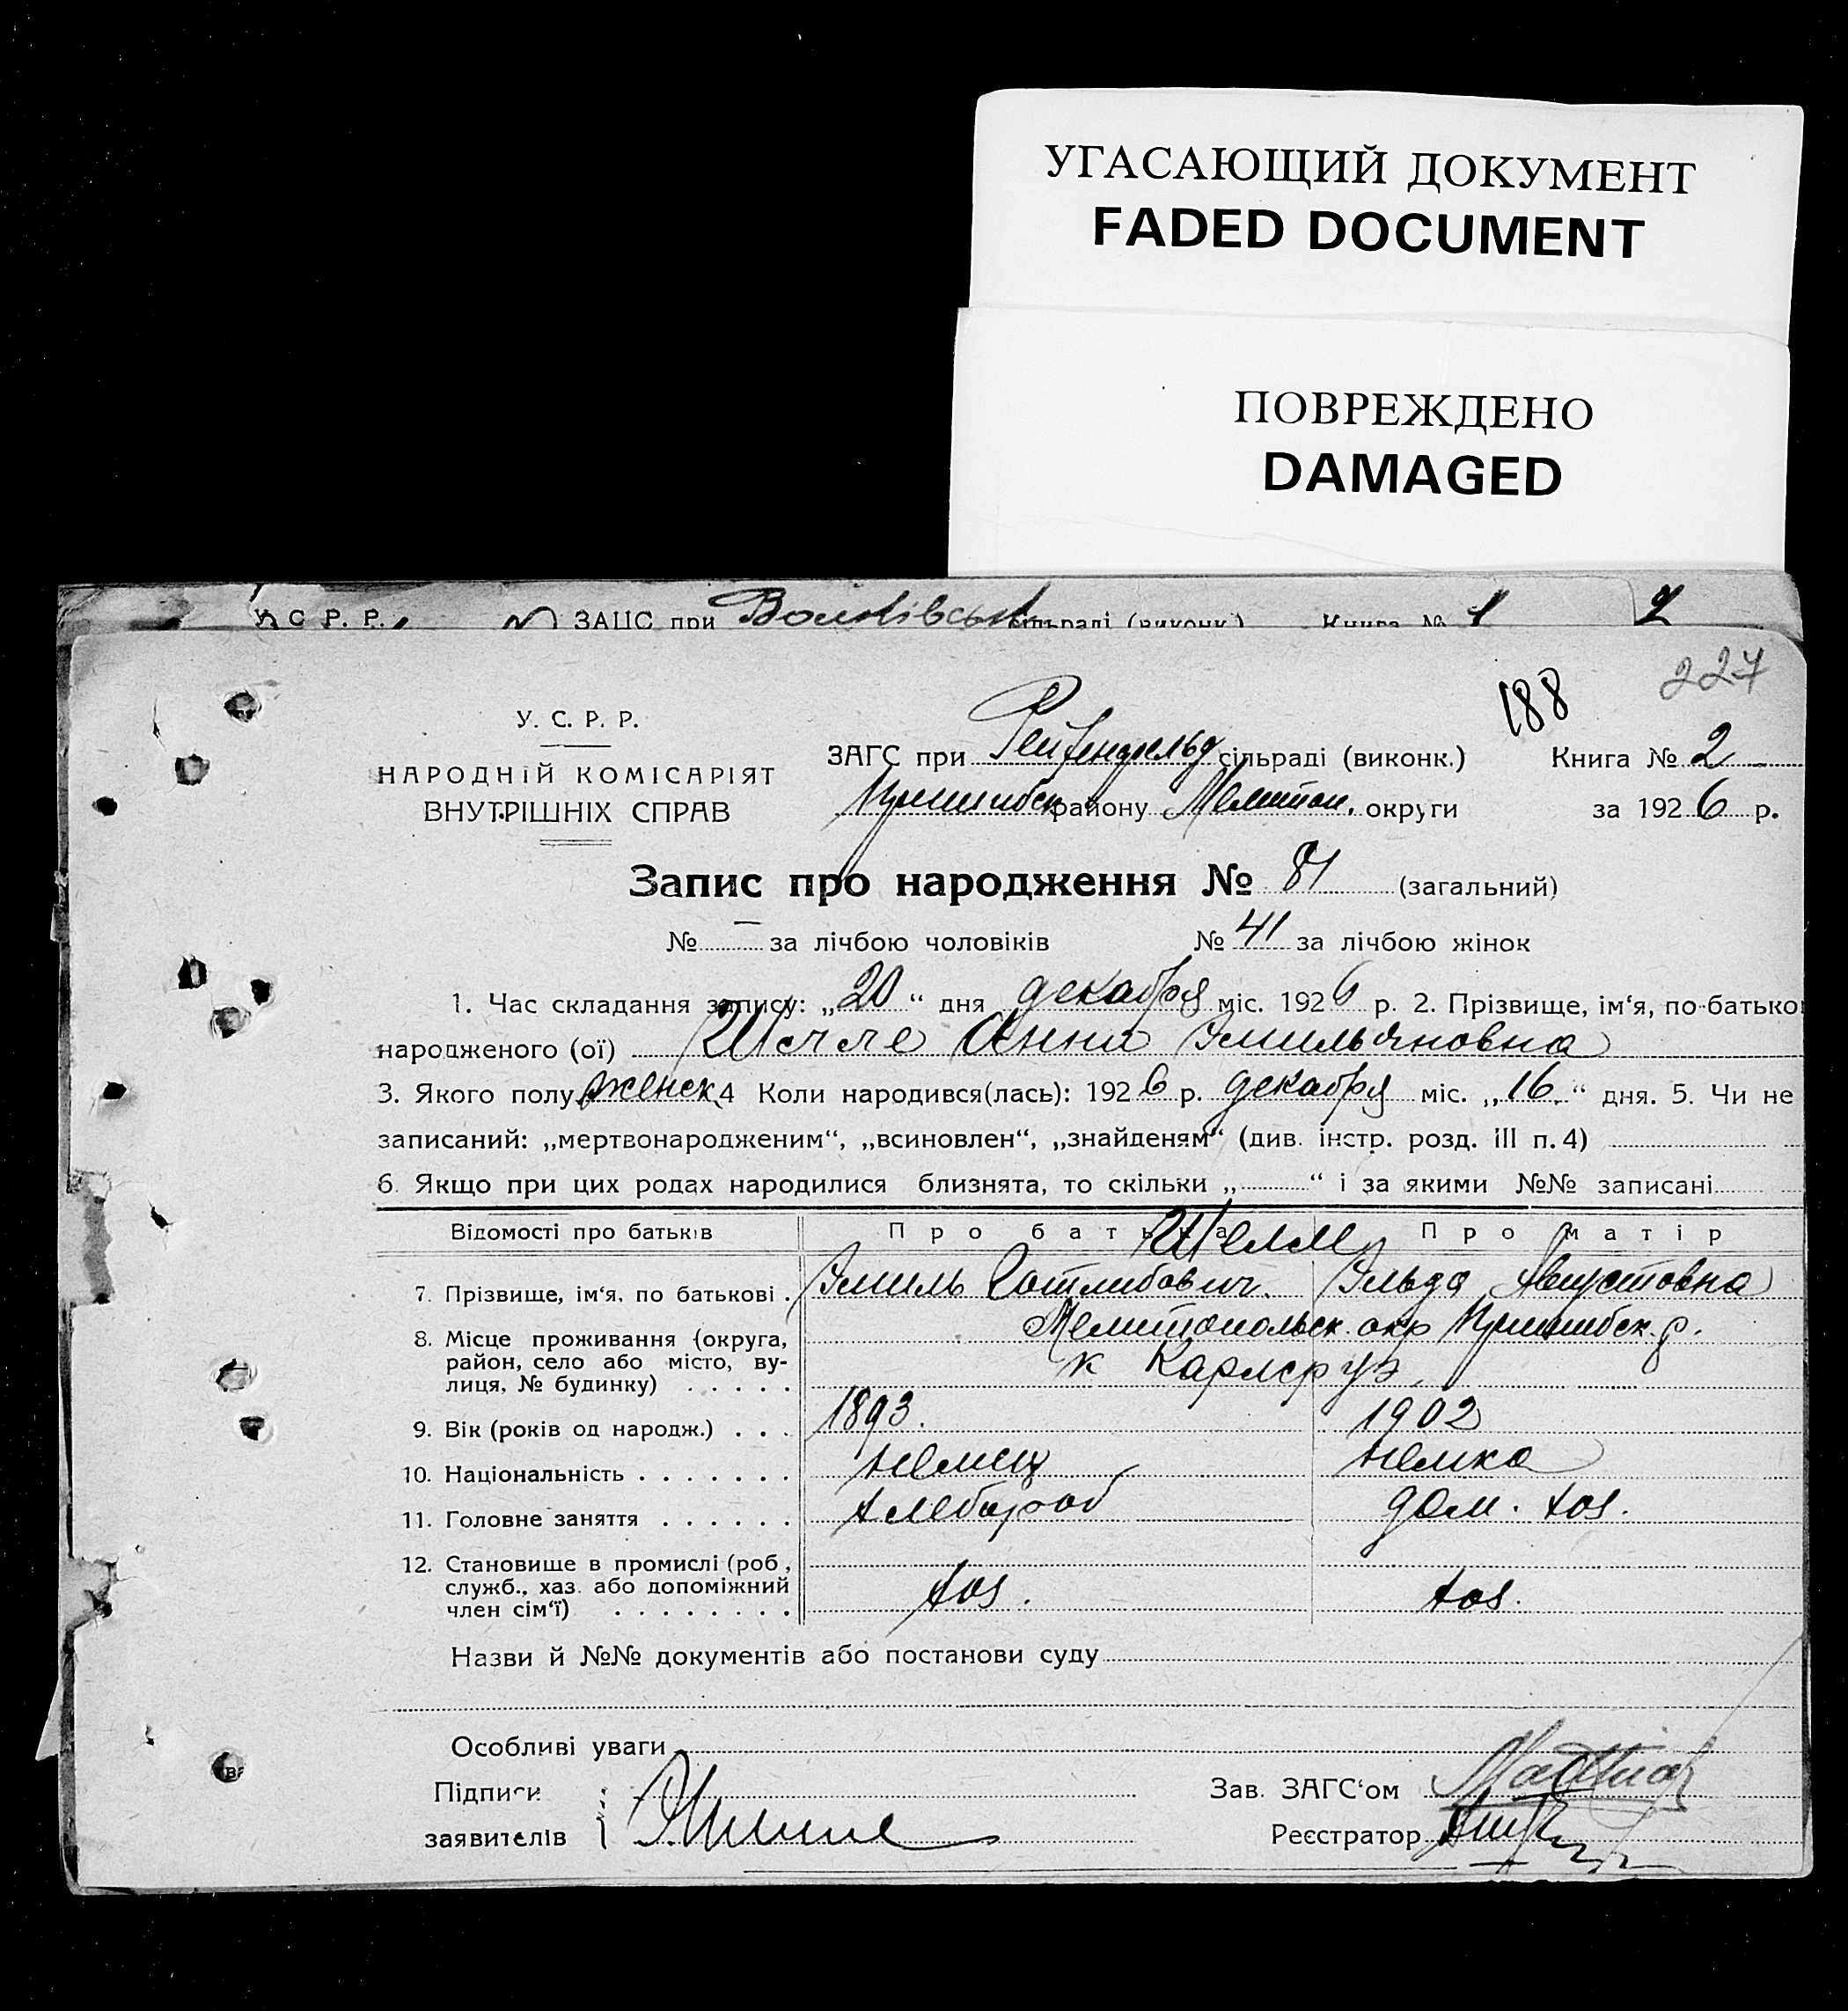 УГАСАЮЩИЙ ДОКУМЕНТ
FADED DOCUMENT
ПОВРЕЖДЕНО
DAMAGED
У. С. Р. Р. ЗАГС при сільраді (виконк.) Книга № 1 2
188 227
У. С. Р. Р.
НАРОДНІЙ КОМІСАРІЯТ
ВНУТРІШНІХ СПРАВ
ЗАГС при Рейхенфельд сільраді (виконк.) Книга № 2
Пришибск району Мелитоп. округи за 1926 р.
Запис про народження № 81 (загальний)
№ — за лічбою чоловіків № 41 за лічбою жінок
1. Час складання запису: „20“ дня декабря міс. 1926 р. 2. Прізвище, ім‘я, по-батько
народженого (ої) Анна Эмильяновна
3. Якого полу женск. 4 Коли народився(лась): 1926 р. декабря міс. „16.“ дня. 5. Чи не
записаний: „мертвонародженим“, „всиновлен“, „знайденям“ (див. інстр. розд. III п. 4)
6. Якщо при цих родах народилися близнята, то скільки „ “ і за якими №№ записані
Відомості про батьків Про батька Про матір
7. Прізвище, ім‘я, по батькові . Эмиль Готлибович. Эльда Августовна
8. Місце проживання (округа, район, село або місто, ву-
лиця, № будинку) . . . . . Мелитопольск. окр Пришибск. р.
к Карлсруэ.
9. Вік (років од народж.) . . . 1893. 1902
10. Національність . . . . . . . немец немка
11. Головне заняття . . . . . . хлебороб дом. хоз.
12. Становище в промислі (роб.,
служб., хаз. або допоміжний
член сім‘ї) . . . . . . . . хоз. хоз.
Назви й №№ документів або постанови суду
Особливі уваги
Підписи
заявителів
Зав. ЗАГС‘ом
Реєстратор